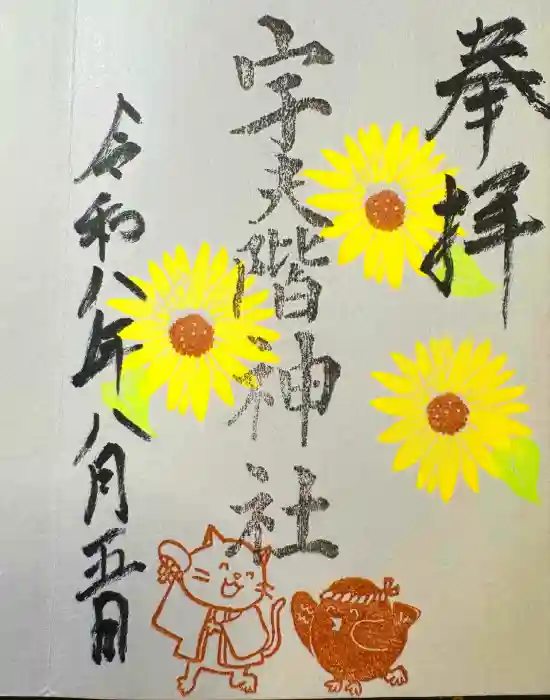 奉拝
宇夫階神社
令和八年八月五日